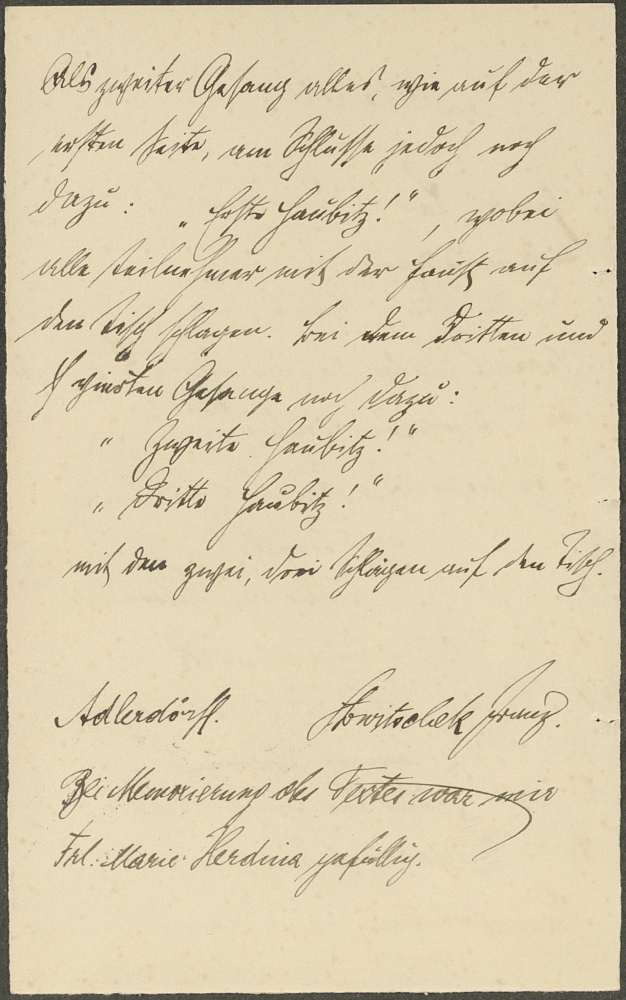 Als zweiter Gesang alles, wie auf der
ersten Seite, am Schlusse jedoch noch
dazu: „Erste Haubitz!“, wobei
alle Teilnehmer mit der Faust auf
den Tisch schlagen. Bei dem Dritten und
vierten Gesange noch dazu:
„Zweite Haubitz!“
„Dritte Haubitz!“
mit den zwei, drei Schlägen auf den Tisch.
Adlerdörfl. Franz.
Bei Memorierung des Textes war mir
Frl. Marie Herdina gefällig.